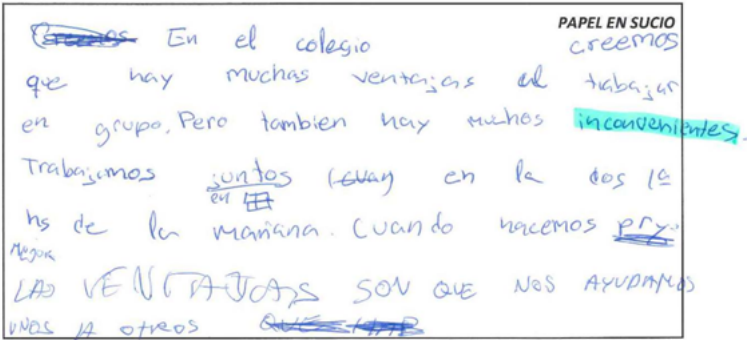 PAPEL EN SUCIO
En el colegio creemos
que hay muchas ventajas al trabajar
en grupo. Pero tambien hay muchos inconvenientes.
Trabajamos juntos en la dos 1ª
en
hs de la mañana. Cuando hacemos pry.
Mejor
LAS VENTAJAS SON QUE NOS AYUDAMOS
UNOS A otreos